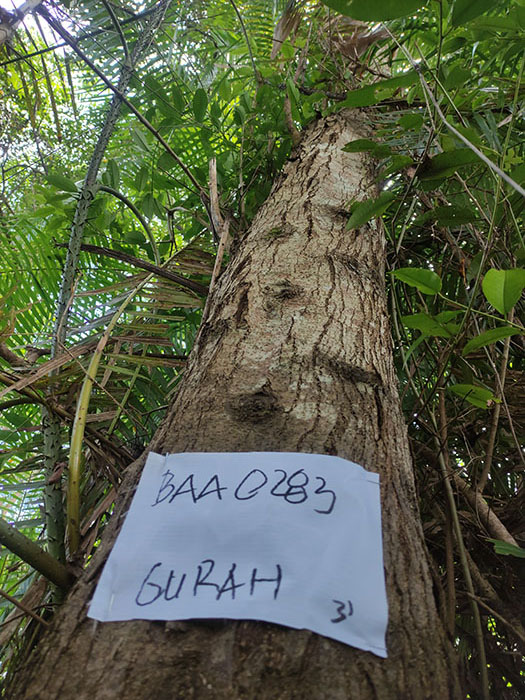 BAA 0283
GURAH
3)